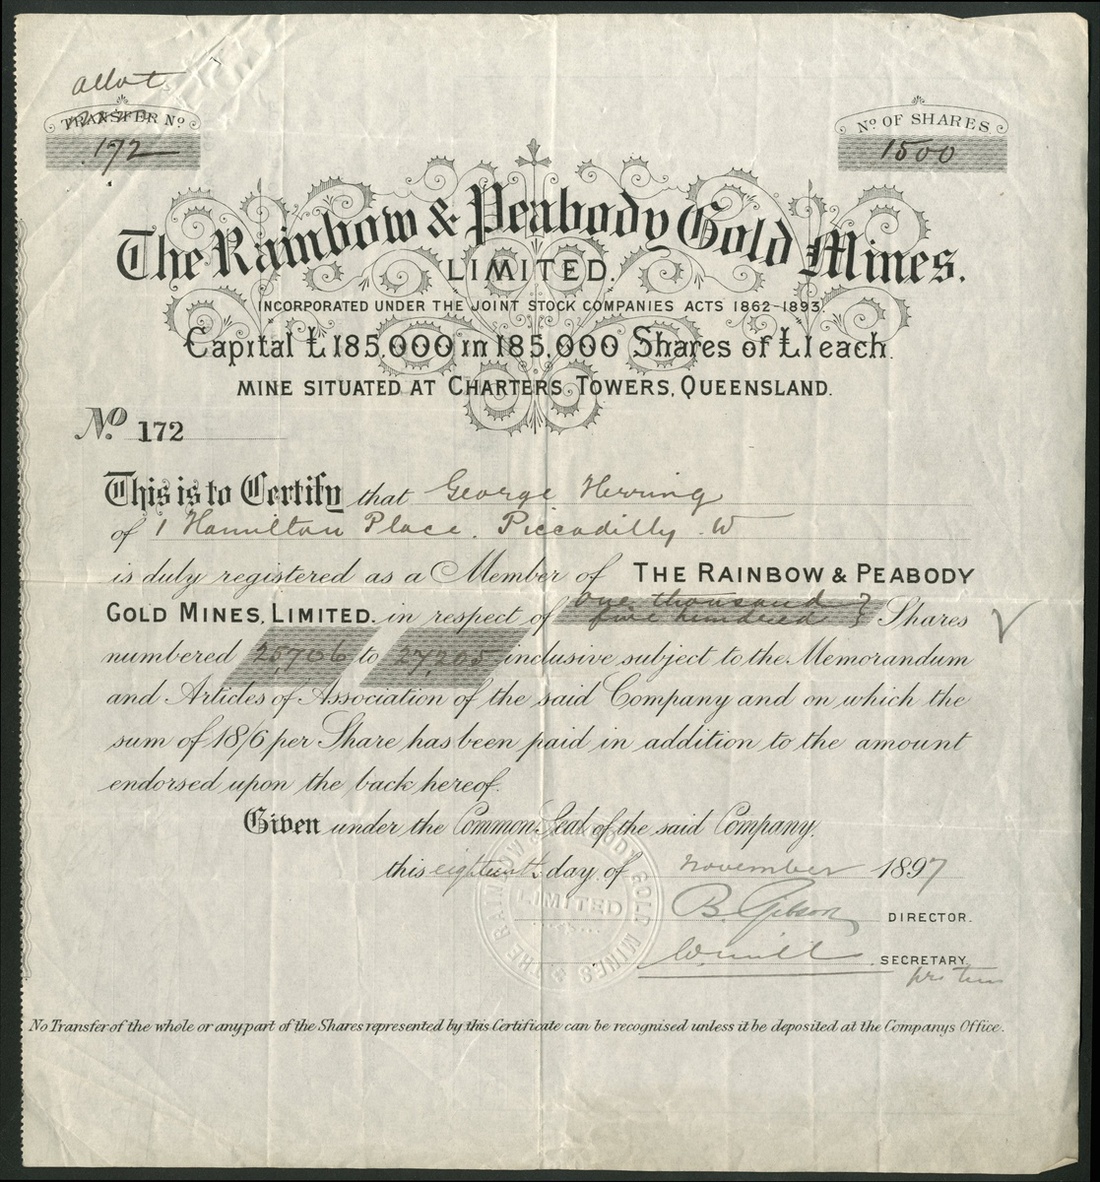 allot
TRANSFER No
172
No OF SHARES
1500
The Rainbow & Peabody Gold Mines.
LIMITED.
INCORPORATED UNDER THE JOINT STOCK COMPANIES ACTS 1862-1893.
Capital £185,000 in 185,000 Shares of £1 each.
MINE SITUATED AT CHARTERS TOWERS, QUEENSLAND.
No. 172
This is to Certify that George Herring
of 1 Hamilton Place. Piccadilly. W
is duly registered as a Member of THE RAINBOW & PEABODY
GOLD MINES, LIMITED. in respect of one thousand five hundred Shares
numbered 25706 to 27,205 inclusive subject to the Memorandum
and Articles of Association of the said Company and on which the
sum of 18/6 per Share has been paid in addition to the amount
endorsed upon the back hereof.
Given under the Common Seal of the said Company.
this eighteenth day of November 1897
B. Gibson DIRECTOR.
SECRETARY.
pro tem
THE RAINBOW & PEABODY GOLD MINES
LIMITED
No Transfer of the whole or any part of the Shares represented by this Certificate can be recognised unless it be deposited at the Companys Office.